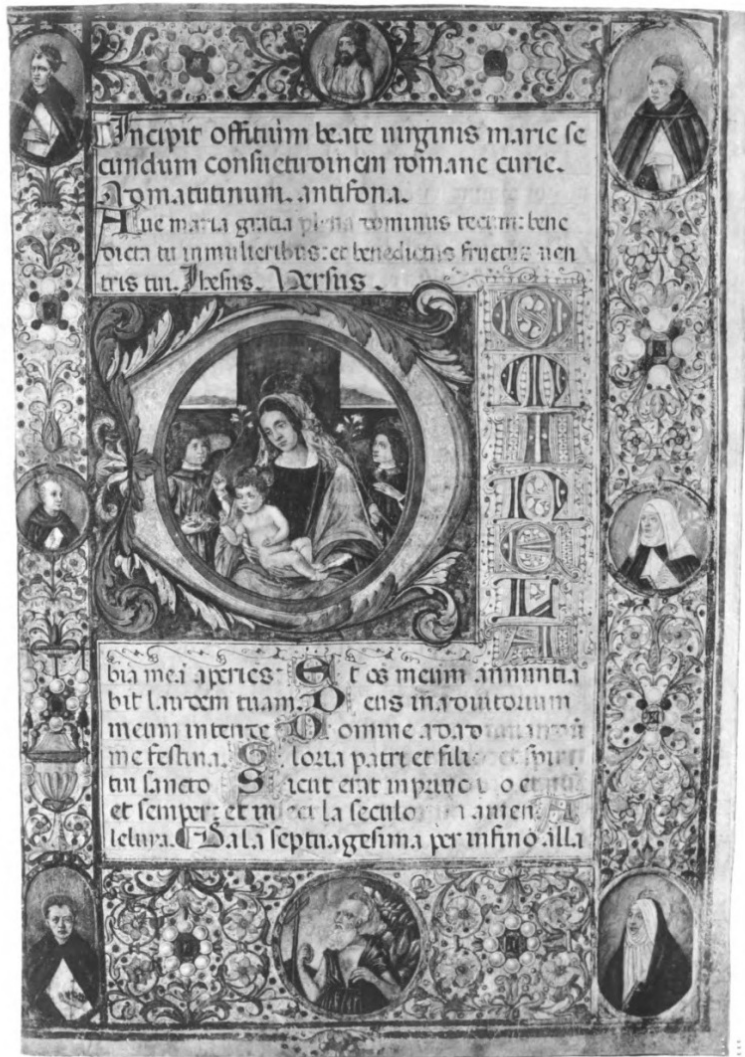 Incipit offitium beate uirginis marie se
cundum consuetudinem romane curie.
Ad matutinum. antifona.
Aue maria gratia plena dominus tecum: bene
dicta tu in mulieribus: et benedictus fructus uen
tris tui. Ihesus. Versus.
D
bia mea aperies. Et os meum annuntia
bit laudem tuam. Deus in adiutorium
meum intende Domine ad
me festina. Gloria patri et filio et spiri
tui sancto Sicut erat in principio et
et semper: et in la seculorum amen. A
leluya. Dala septuagesima per infino alla